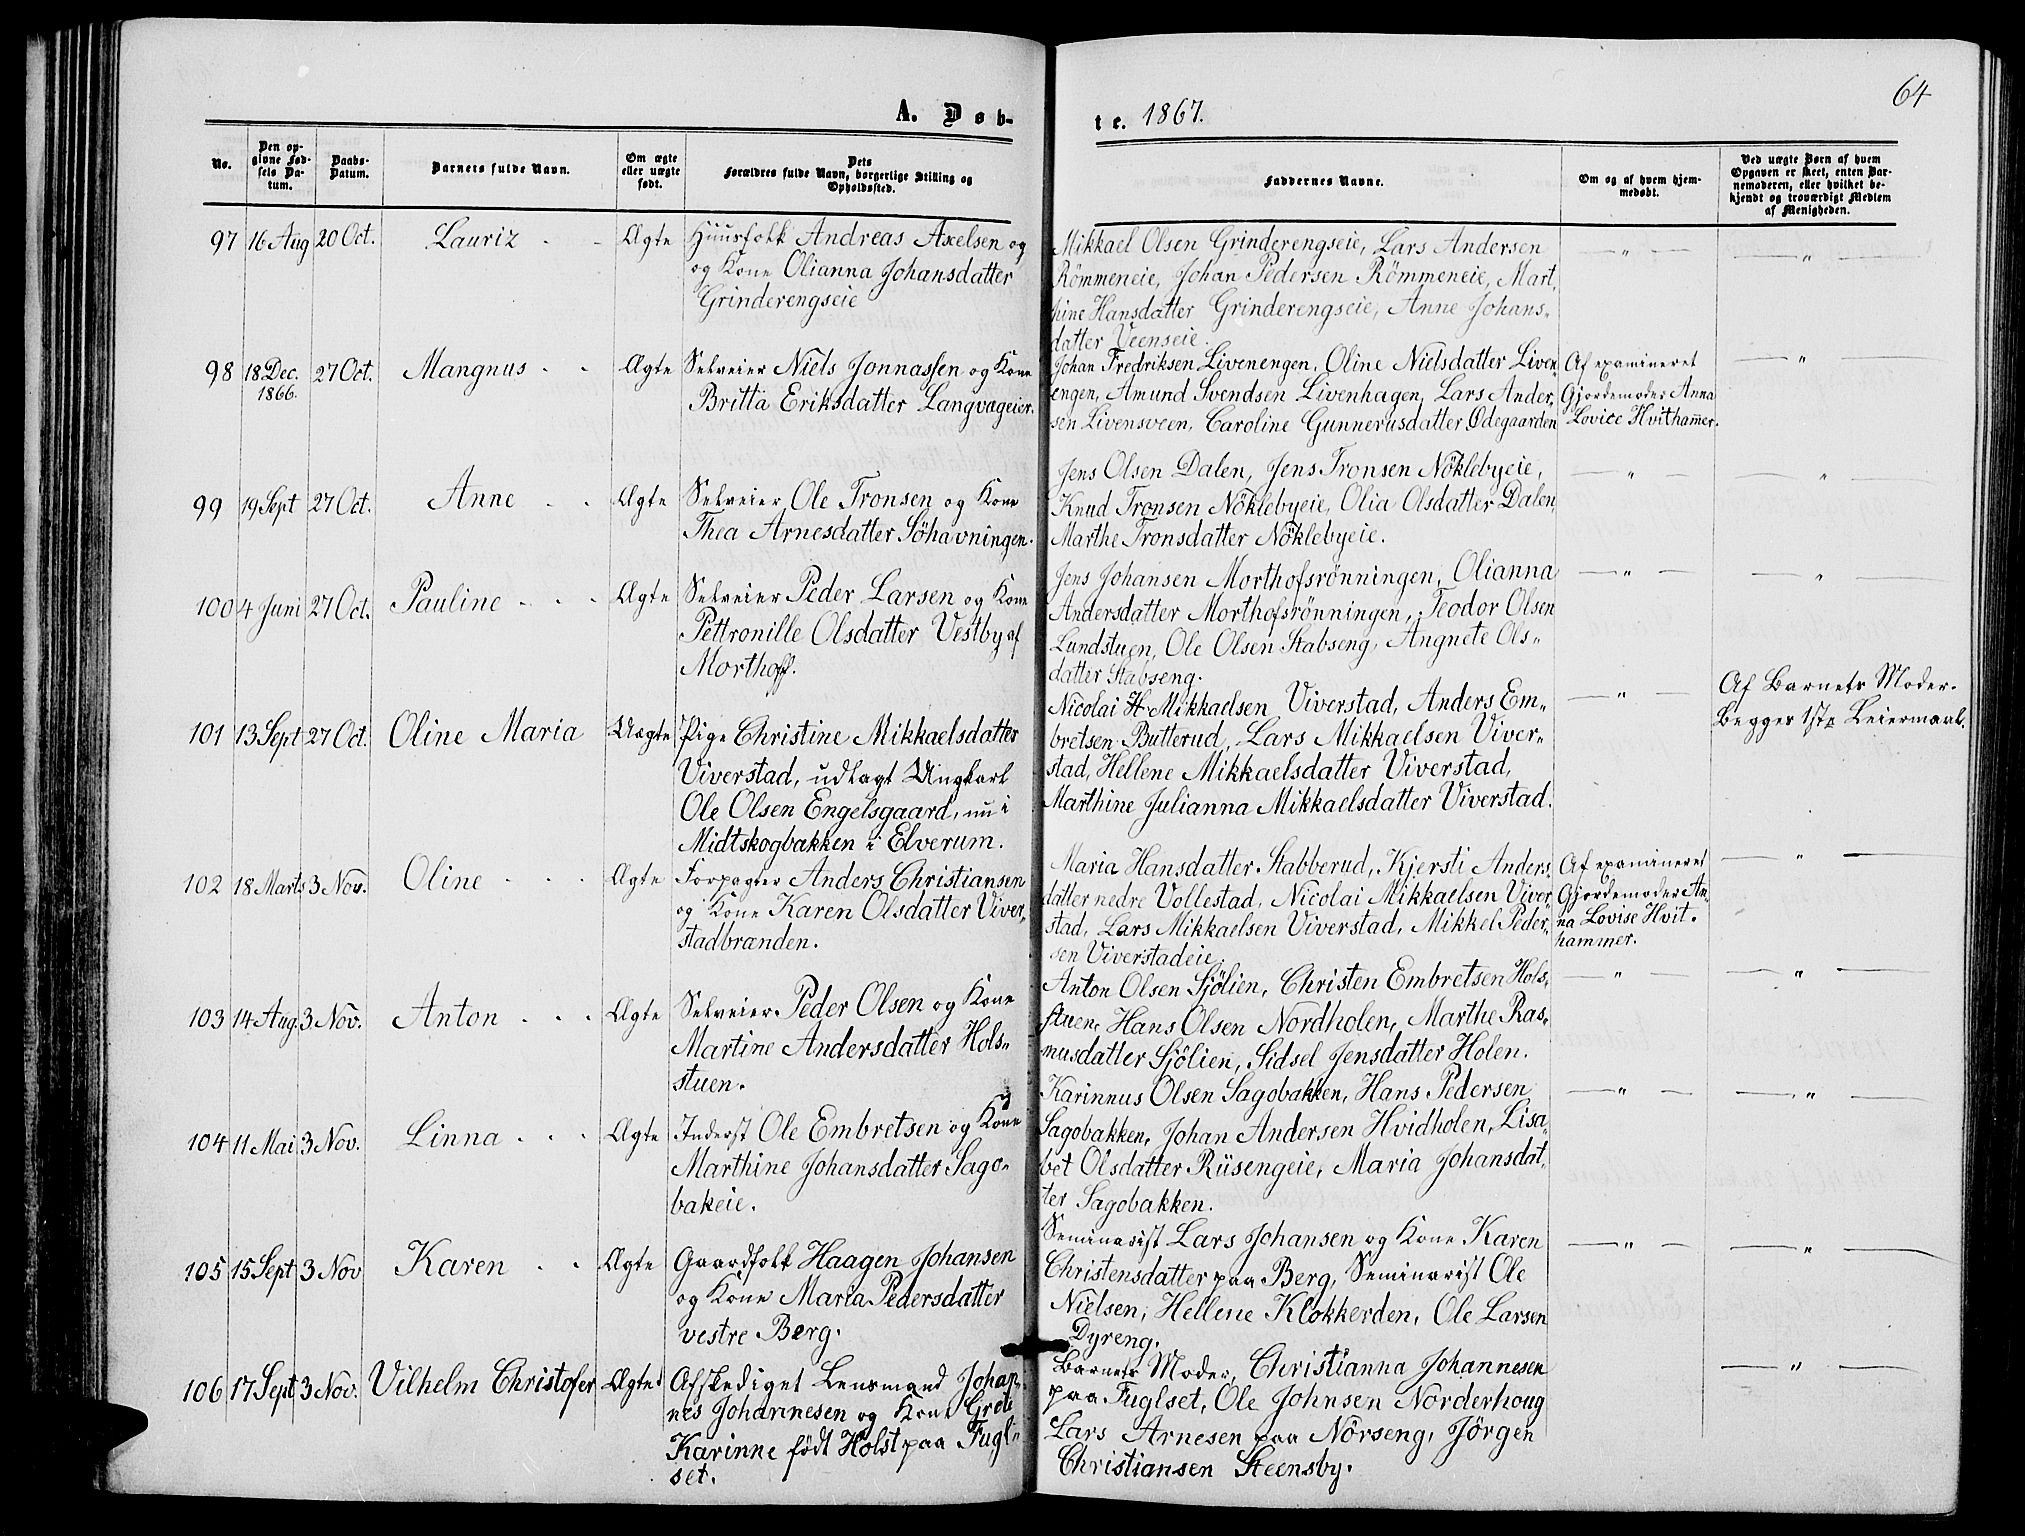 64
A. Døb-
te. 1867.
No.
Den op-
givne Fød-
sels Da-
tum.
Daabs-
Datum.
Barnets fulde Navn.
Om ægte
eller uægte
født.
Dets
Forældres fulde Navn, borgerlige Stilling og
Opholdssted.
Faddernes Navne.
Om og af hvem hjem-
medøbt.
Ved uægte Børn af hvem
Opgaven er skeet, enten Bar-
nemoderen, eller hvilket be-
kjendt og troværdigt Medlem
af Menigheden.
97 16 Aug 20 Oct. Lauriz - - Ægte Huusfolk Andreas Axelsen og
og Kone Olianna Johansdatter
Grinderengseie
Mikkael Olsen Grinderengseie, Lars Andersen
Römmeneie, Johan Pedersen Römmeneie, Mart,
hine Hansdatter Grinderengseie, Anne Johans-
datter Veenseie.
— " — — " —
98 18 Dec. 27 Oct. Mangnus - - Ægte Selveier Niels Jonnassen og Kone
1866. Britta Eriksdatter Langvageier.
Johan Fredriksen Livenengen, Oline Nielsdatter Liven
engen, Amund Svendsen Livenhagen, Lars Ander,
sen Livensveen, Caroline Gunnerusdatter Ødegaarden
Af examineret
Gjordemoder Anna
Lovice Hvithammer.
— " —
99 19 Sept 27 Oct. Anne - - Ægte Selveier Ole Tronsen og Kone
Thea Arnesdatter Söhavningen.
Jens Olsen Dalen, Jens Tronsen Nöklebyeie,
Knud Tronsen Nöklebyeie, Olia Olsdatter Dalen,
Marthe Tronsdatter Nöklebyeie.
— " — — " —
100 4 Juni 27 Oct. Pauline - - - Ægte Selveier Peder Larsen og Kone
Pettronille Olsdatter Vestby af
Morthoff.
Jens Johansen Morthofsrönningen, Olianna
Andersdatter Morthofsrönningen, Teodor Olsen
Lundstuen, Ole Olsen Stabseng, Angnete Ols-
datter Stabseng.
— " — — " —
101 13 Sept 27 Oct. Oline Maria Uægte Pige Christine Mikkaelsdatter
Viverstad, udlagt Ungkarl
Ole Olsen Engelsgaard, nu i
Midtskogbakken i Elverum.
Nicolai H. Mikkaelsen Viverstad, Anders Em-
bretsen Butterud, Lars Mikkaelsen Viver-
stad, Hellene Mikkaelsdatter Viverstad,
Marthine Julianna Mikkaelsdatter Viverstad.
— " —
Af Barnets Moder.
Begges 1ste Leiermaal.
102 18 Marts 3 Nov. Oline - - - Ægte Forpagter Anders Christiansen
og Kone Karen Olsdatter Viver,
stadbrænden.
Maria Hansdatter Stabberud, Kjersti Anders,
datter nedre Vollestad, Nicolai Mikkaelsen Viver,
stad, Lars Mikkaelsen Viverstad, Mikkel Peder,
sen Viverstadeie.
Af examineret
Gjordemoder An-
na Lovise Hvit-
hammer.
— " —
103 14 Aug. 3 Nov. Anton - - - Ægte Selveier Peder Olsen og Kone
Martine Andersdatter Hols-
stuen.
Anton Olsen Sjölien, Christen Embretsen Hols,
stuen, Hans Olsen Nordholen, Marthe Ras,
musdatter Sjölien, Sidsel Jensdatter Holen.
— " — — " —
104 11 Mai 3 Nov. Linna - - - Ægte Inderst Ole Embretsen og Kone
Marthine Johansdatter Sago-
bakeie.
Karinnus Olsen Sagobakken, Hans Pedersen
Sagobakken, Johan Andersen Hvidholen, Lisa,
bet Olsdatter Rüsengeie, Maria Johansdat,
ter Sagobakken.
— " — — " —
105 15 Sept 3 Nov Karen - - Ægte Gaardfolk Haagen Johansen
og Kone Maria Pedersdatter
vestre Berg.
Seminarist Lars Johansen og Kone Karen
Christensdatter paa Berg, Seminarist Ole
Nielsen, Hellene Klokkerden, Ole Larsen
Dyreng.
— " — — " —
106 17 Sept 3 Nov. Vilhelm Christofer Ægte Afskediget Lensmand Johan-
nes Johannesen og Kone Grete
Karinne födt Holst paa Fugl-
set.
Barnets Moder, Christianna Johannesen
paa Fuglset, Ole Johnsen Norderhoug
Lars Arnesen paa Nörseng, Jörgen
Christiansen Steensby.
— " —